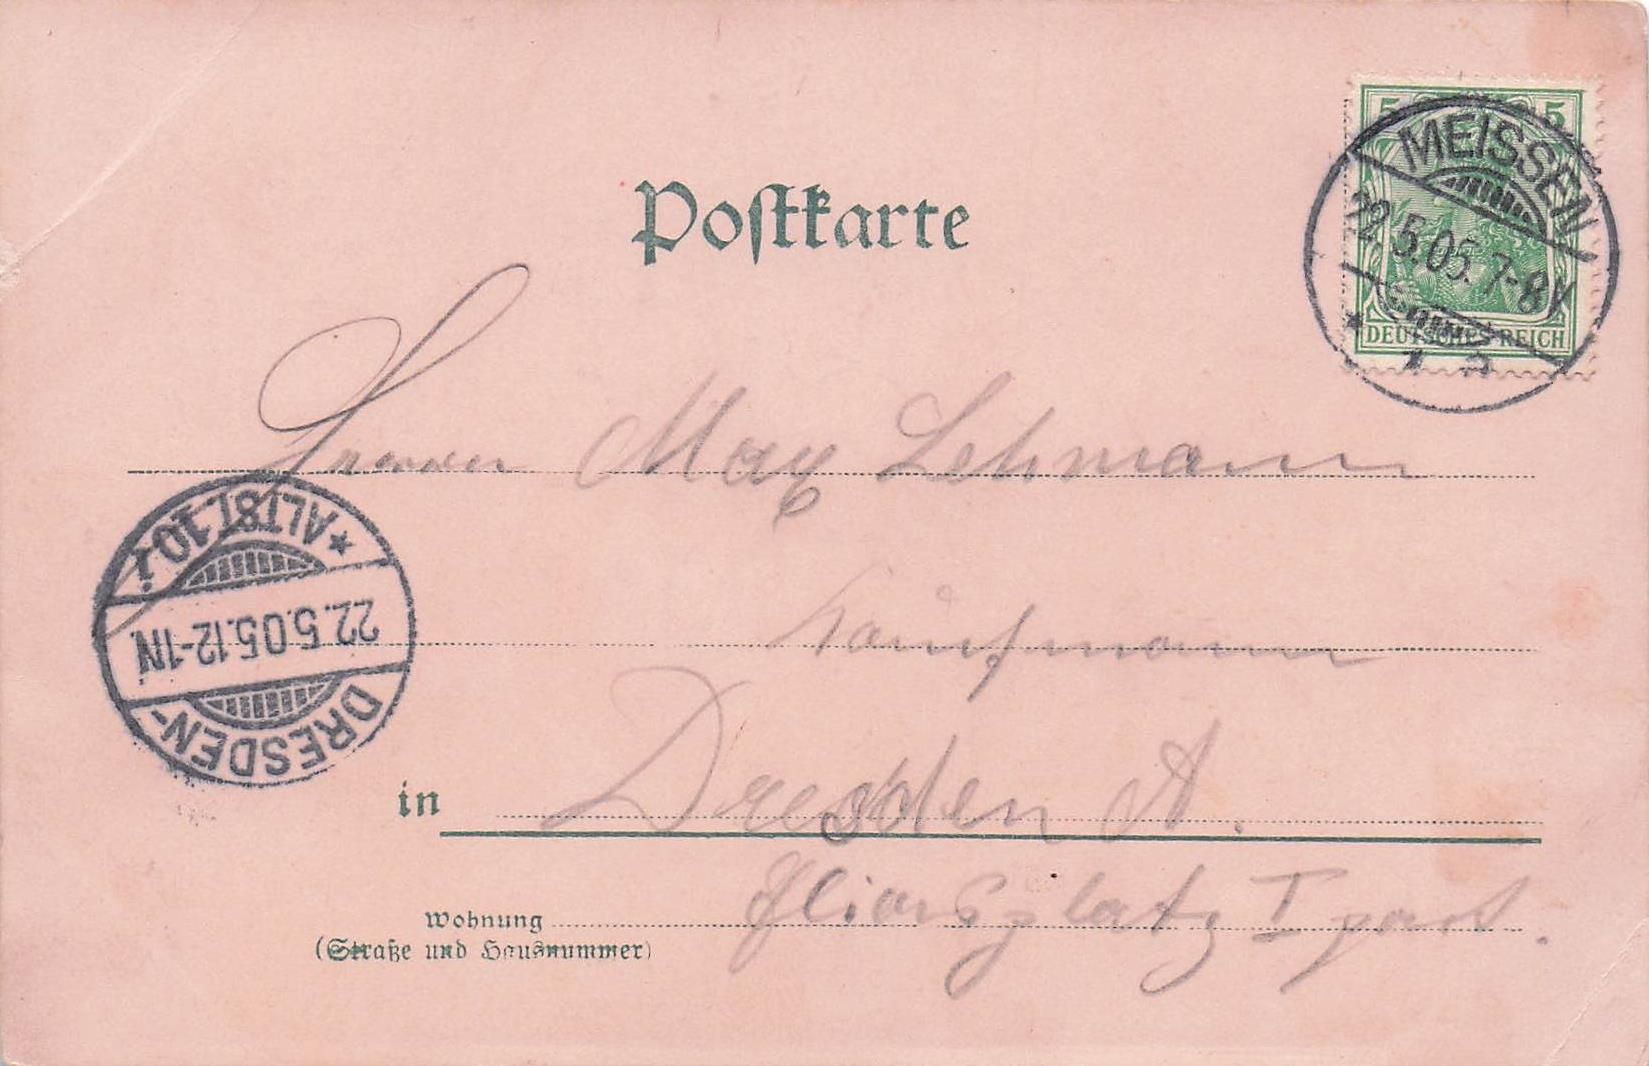 5 5
MEISSEN
22.5.05. 7-8V
DEUTSCHES REICH
Postkarte
Herrn Max Lehmann
Kaufmann
in Dresden A.
Wohnung Eliasplatz I part.
(Straße und Hausnummer)
DRESDEN-
22.5.05.12-1N
*ALTST.10.i